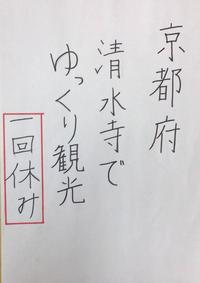 京都府
清水寺で
ゆっくり観光
一回休み